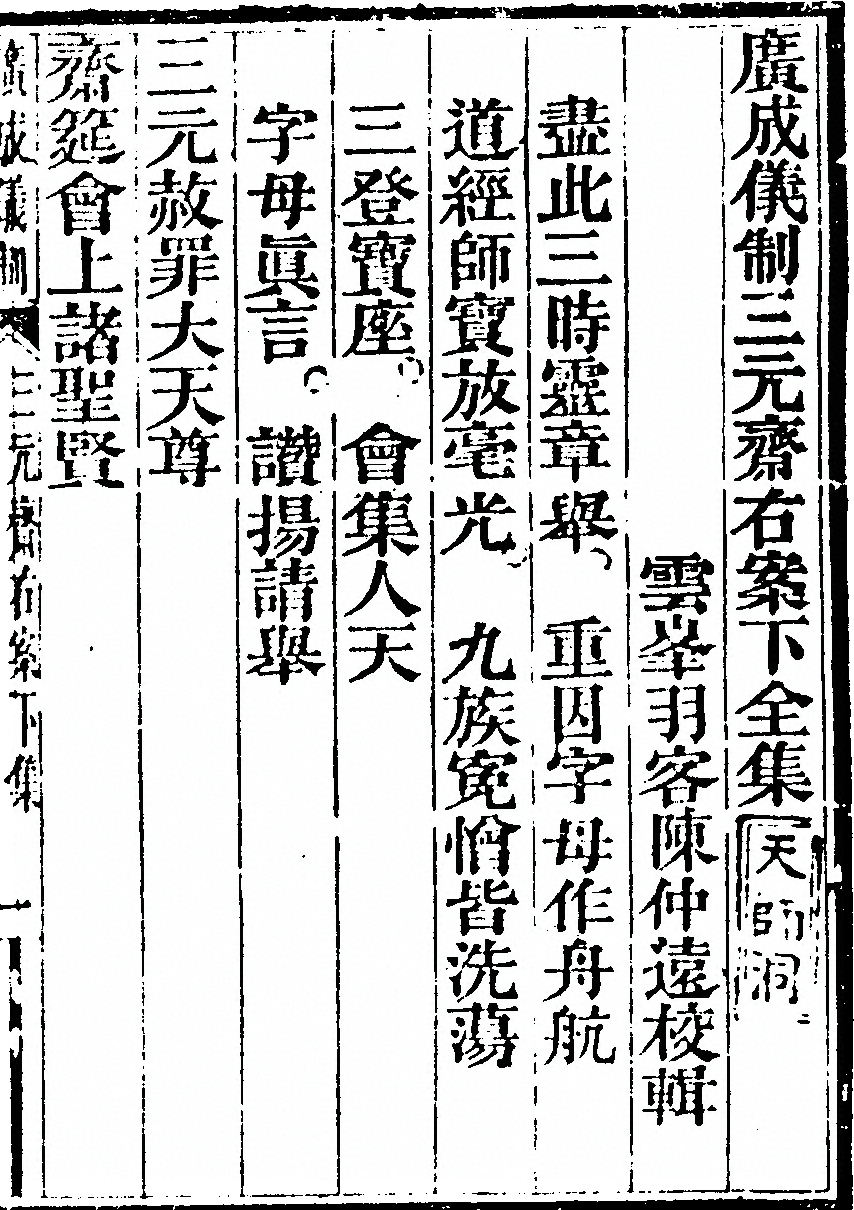 廣成儀制三元齋右案下全集
天師洞
雲峯羽客陳仲遠校輯
盡此三時靈章舉、重囚字母作舟航
道經師寶放毫光。九族寃憎皆洗蕩
三登寶座。會集人天
字母眞言。讚揚請舉
三元赦罪大天尊
齋筵會上諸聖賢
廣成儀制 三元齋右案下集 一